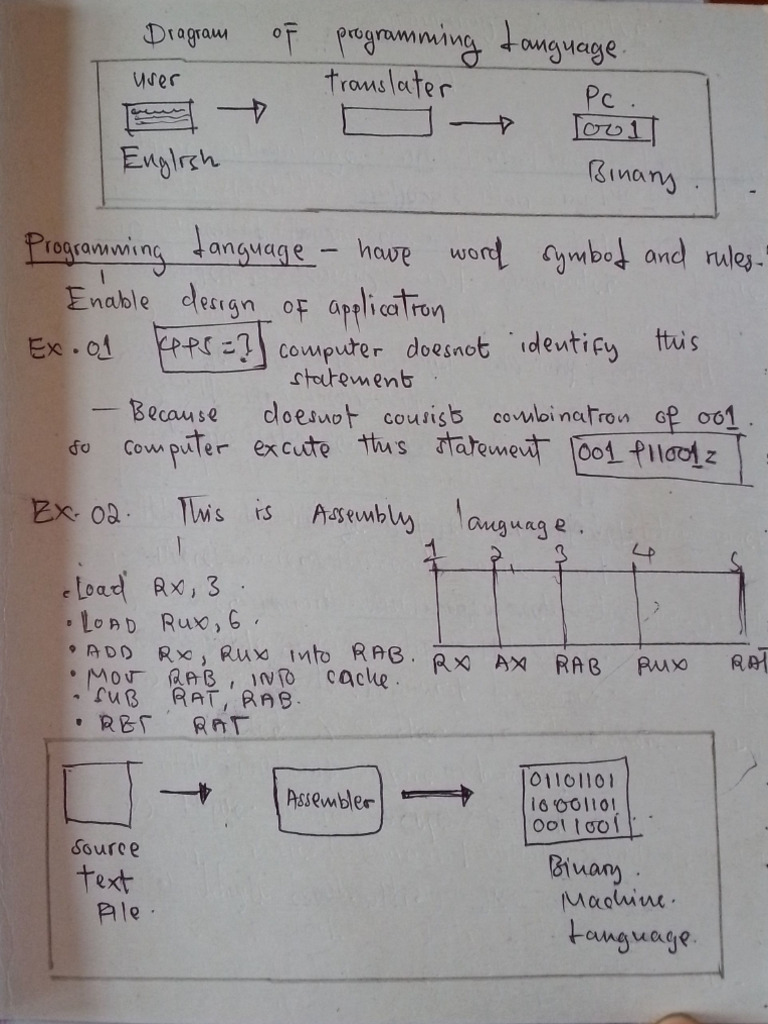 Diagram of programming Language.
user
translater
Pc.
001
English
Binary.
Programming Language – have word symbol and rules.
Enable design of application
Ex.01 4+5=? computer doesnot identify this
statement.
— Because doesnot cousists combination of 001.
so computer excute this statement 001 +11001=
Ex.02. This is Assembly Language.
1 2 3 4 5
• Load RX, 3.
• LOAD RUX, 6.
• ADD RX, RUX into RAB.
RX AX RAB RUX RAT
• MOV RAB, INTO cache.
• SUB RAT, RAB.
• RET RAT
Assembler
01101101
10001101
0011001
source
Text
File.
Binary.
Machine.
Language.